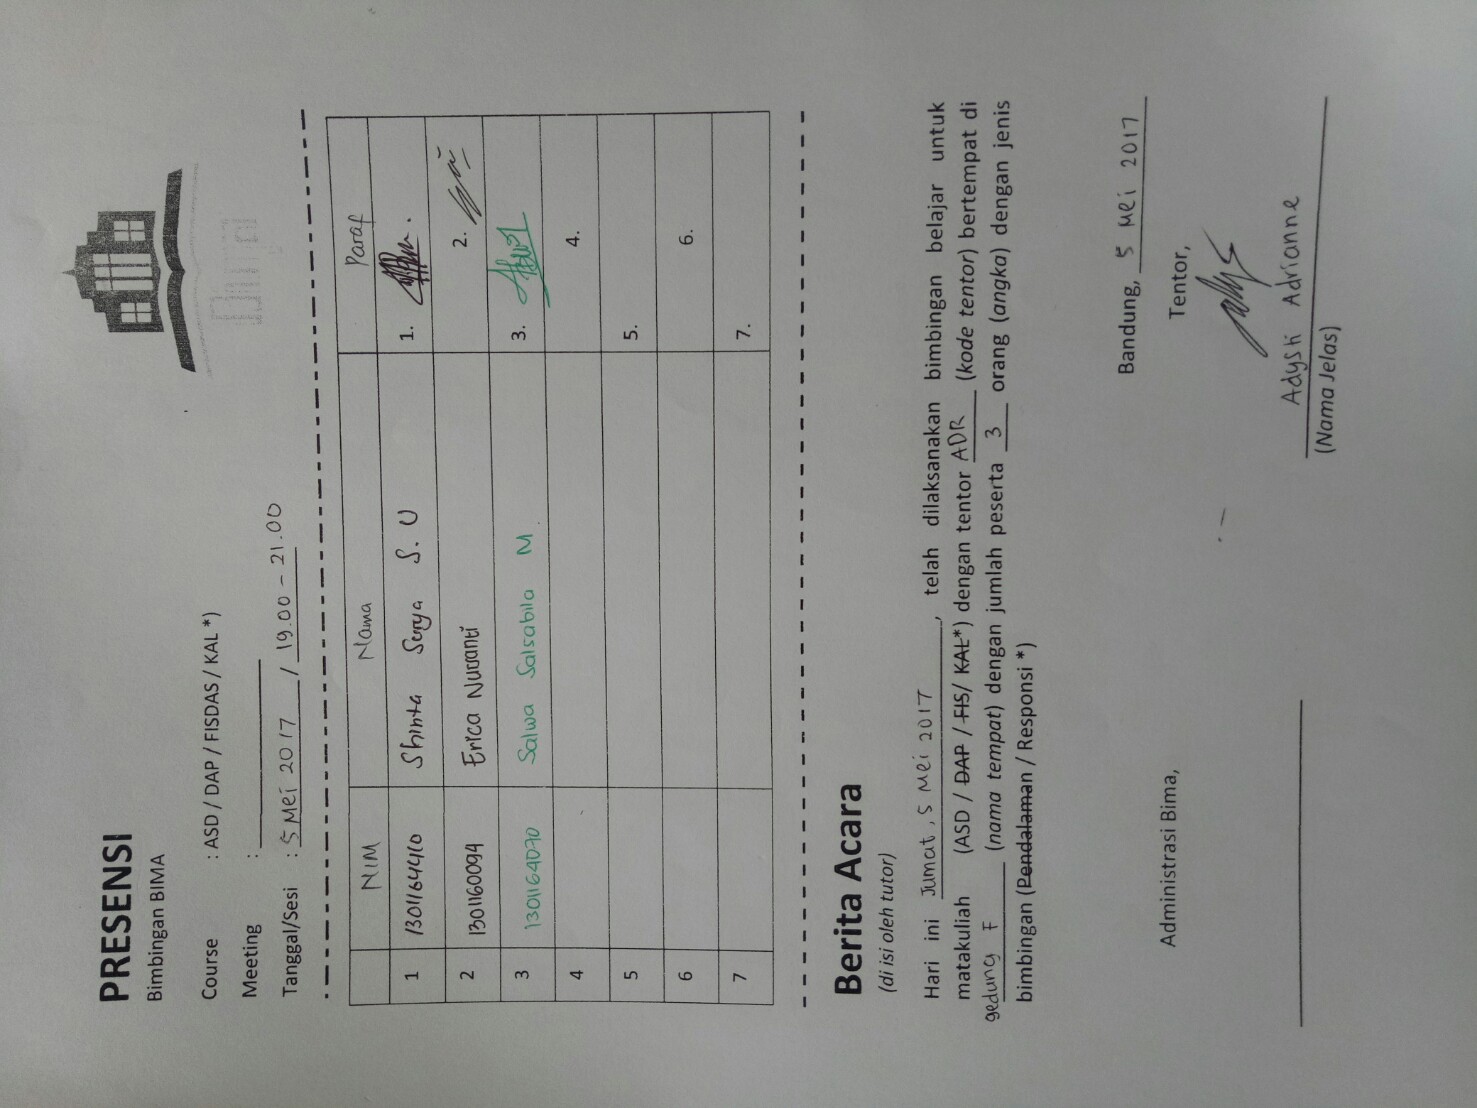 PRESENSI
Bimbingan BIMA
Course : ASD / DAP / FISDAS / KAL *)
Meeting :
Tanggal/Sesi : 5 Mei 2017 / 19.00 - 21.00
NIM Nama Paraf
1 1301164410 Shinta Surya S. U 1.
2 1301160094 Erica Nuranti 2.
3 1301164070 Salwa Salsabila M 3.
4 4.
5 5.
6 6.
7 7.
Berita Acara
(di isi oleh tutor)
Hari ini Jumat, 5 Mei 2017, telah dilaksanakan bimbingan belajar untuk
matakuliah (ASD / DAP / FIS/ KAL*) dengan tentor ADR (kode tentor) bertempat di
gedung F (nama tempat) dengan jumlah peserta 3 orang (angka) dengan jenis
bimbingan (Pendalaman / Responsi *)
Bandung, 5 Mei 2017
Administrasi Bima, Tentor,
Adysti Adrianne
(Nama Jelas)